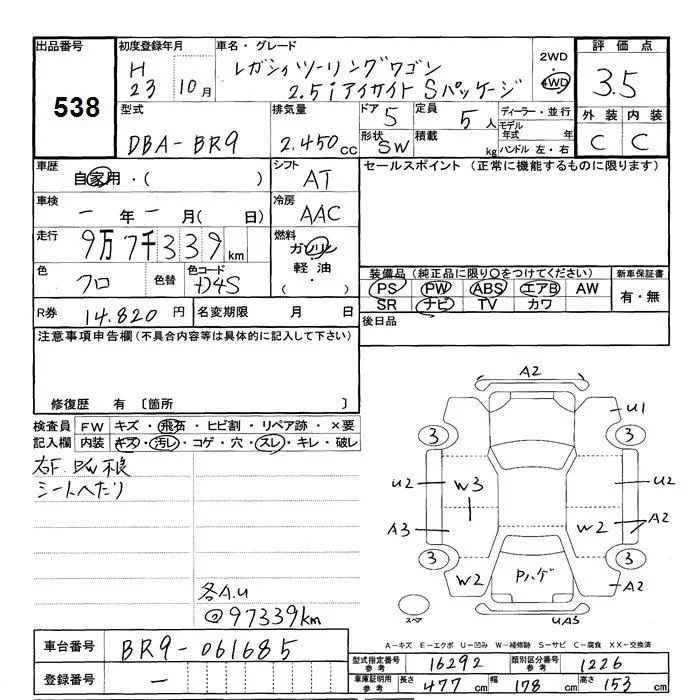 出品番号
538
初度登録年月
H
23 10月
車名・グレード
レガシィツーリングワゴン
2.5iアイサイトSパッケージ
2WD
4WD
評価点
3.5
外装 内装
C C
型式
DBA-BR9
排気量
2.450cc
ドア 5
形状 SW
定員 5人
積載 kg
ディーラー・並行
モデル年式 年
ハンドル 左・右
車歴
自家用・( )
シフト
AT
車検
一年一月( 日)
冷房
AAC
走行
9万7千339km
燃料
ガソリン
・
軽油
・
( )
色
クロ
色替
色コード
D4S
R券 14.820円
名変期限 月 日
セールスポイント (正常に機能するものに限ります)
装備品 (純正品に限り〇をつけてください)
PS PW ABS エアB AW
SR ナビ TV カワ
新車保証書
有・無
後日品
注意事項申告欄(不具合内容等は具体的に記入して下さい)
修復歴 有 〔箇所 〕
検査員記入欄
FW キズ・飛石・ヒビ割・リペア跡・×要
内装 キズ・汚レ・コゲ・穴・スレ・キレ・破レ
右F.P/W不良
シートへたり
各A.U
@97339km
A2
U1
3 3
U2 W3 U2
A3 W2 A2
3 3
W2 Pハゲ A2
スペア
UA3
A-キズ E-エクボ U-凹み W-補修跡 S-サビ C-腐食 XX-交換済
車台番号 BR9-061685
登録番号 ー
型式指定番号参考 16292
類別区分番号参考 1226
車庫証明用参考 長さ 477cm 幅 178cm 高さ 153cm